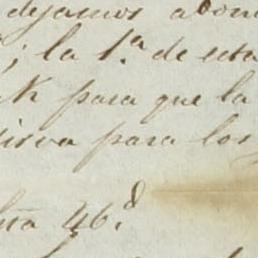 dejamos abon
; la 1.ª de esta
para que la
sirva para los
46.º